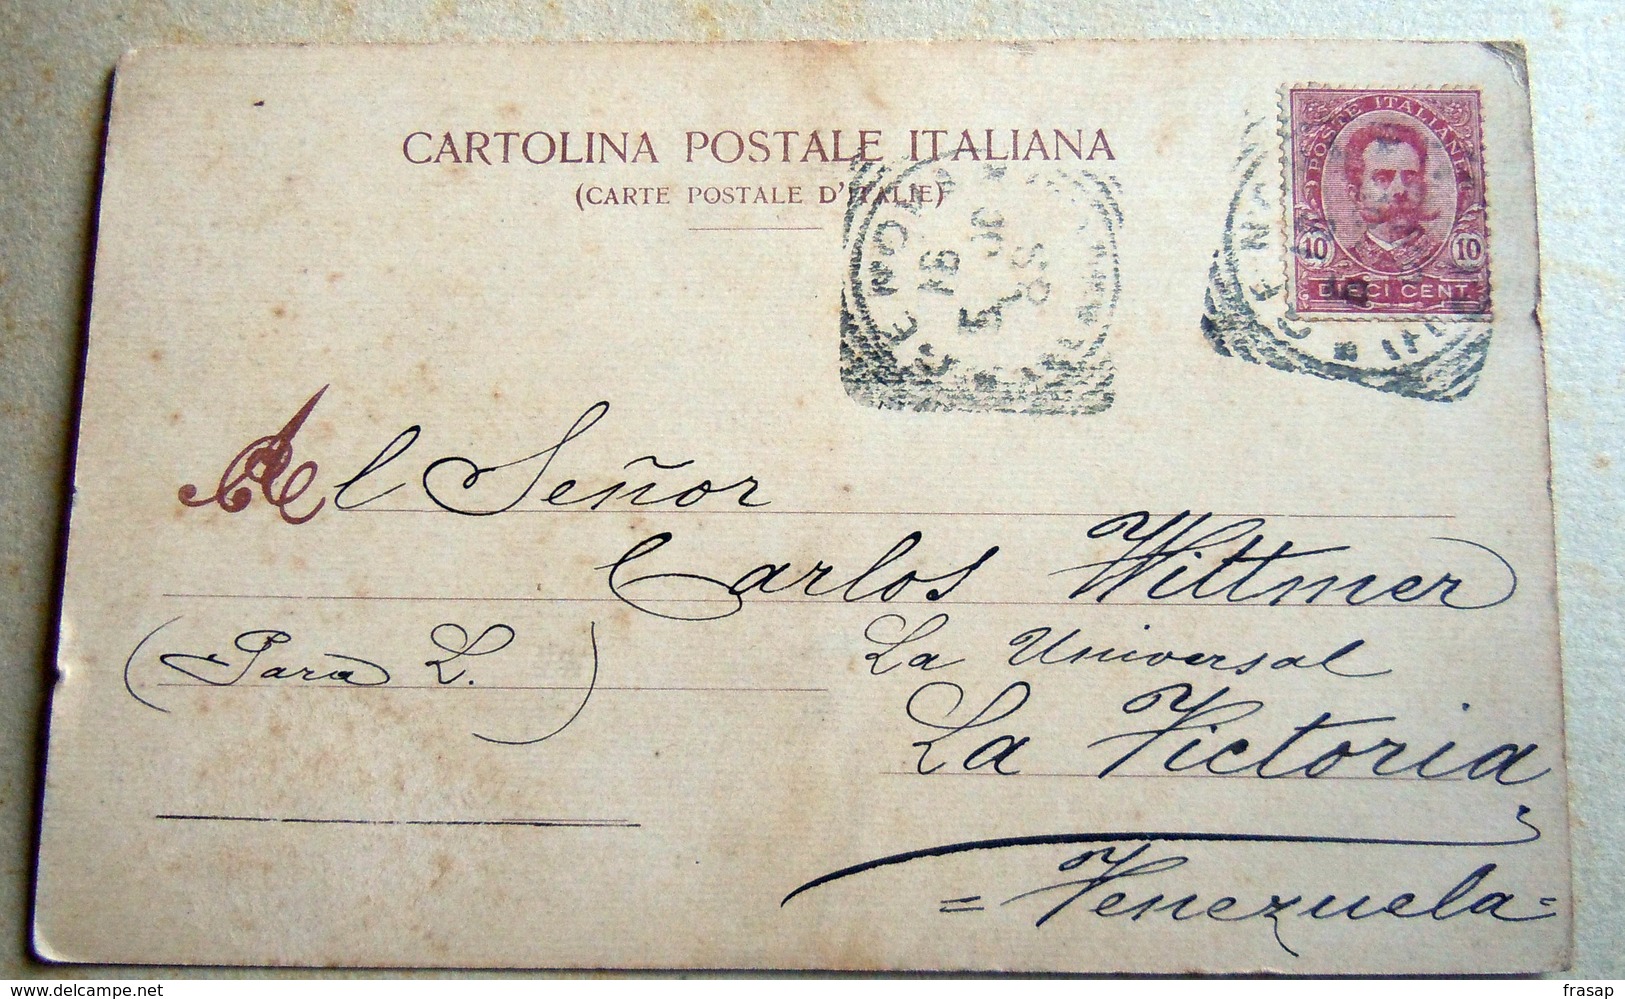 CARTOLINA POSTALE ITALIANA
(CARTE POSTALE D'ITALIE)
POSTE ITALIANE
10 10
DIECI CENT.
16
5
Al Señor
Carlos Wittmer
(Para L.)
La Universal
La Victoria
= Venezuela =
www.delcampe.net
frasap